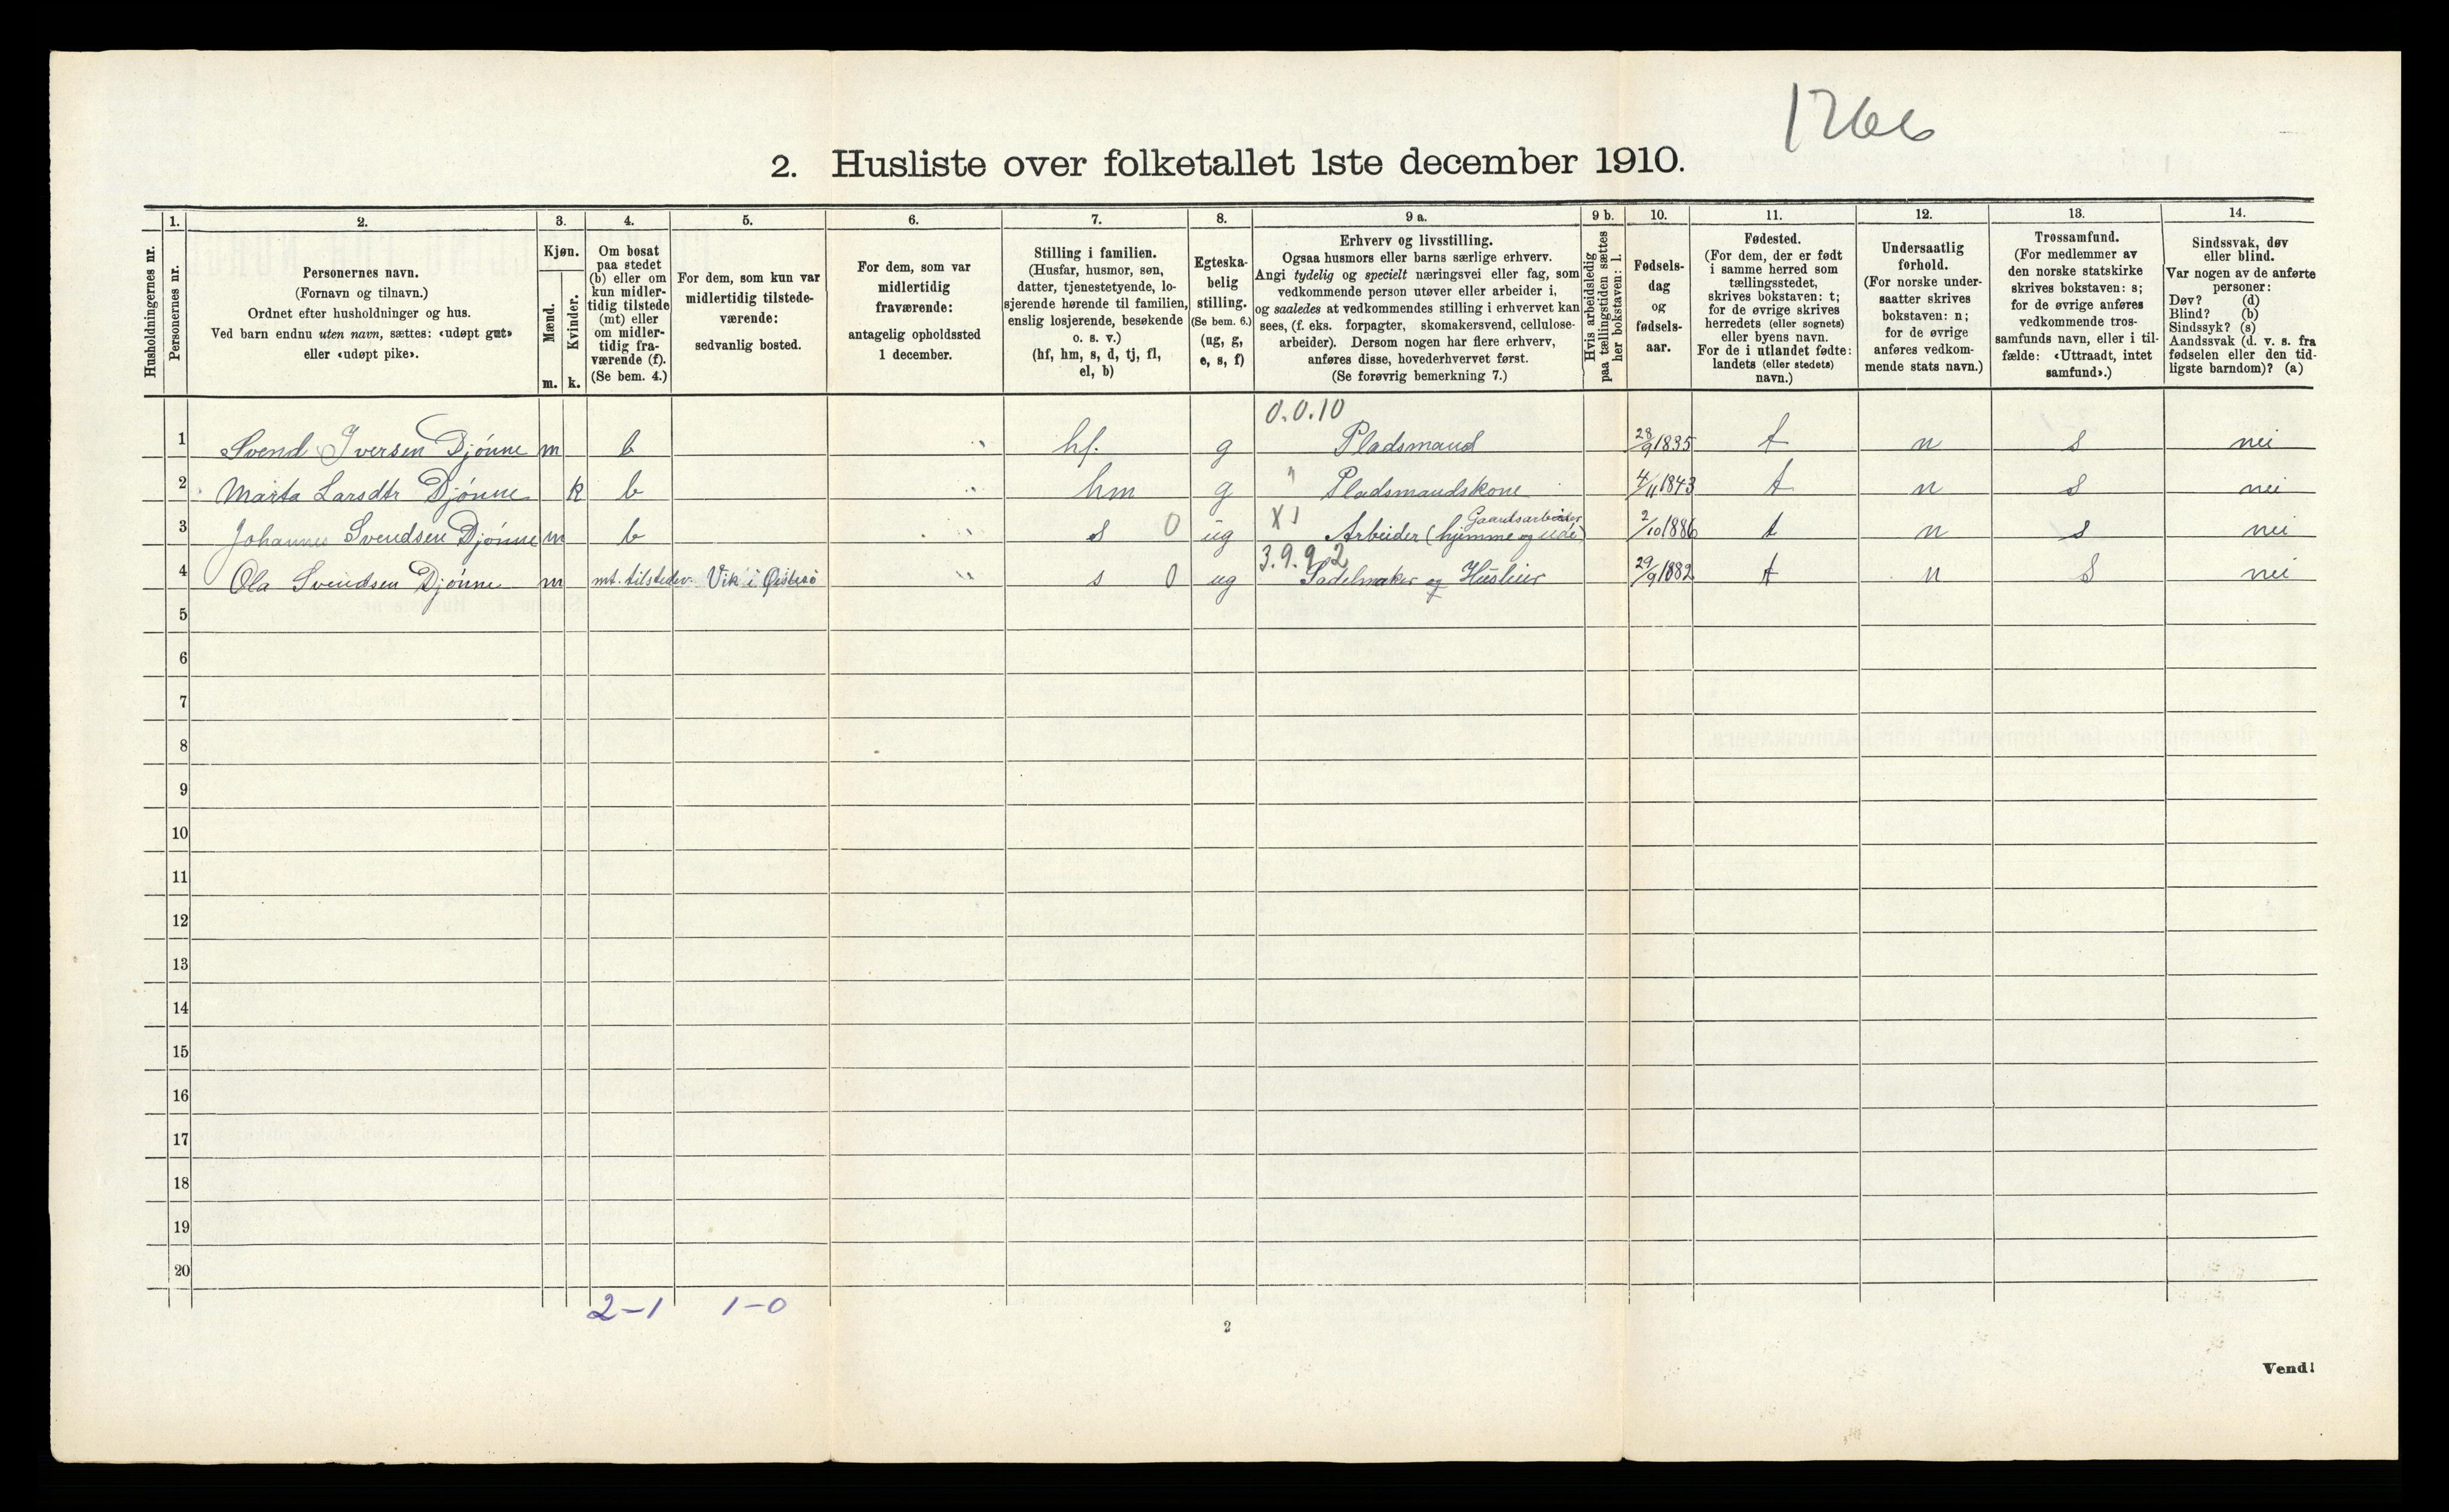 1266
2. Husliste over folketallet 1ste december 1910.
Husholdningernes nr.
1.
Personernes nr.
2.
Personernes navn.
(Fornavn og tilnavn.)
Ordnet efter husholdninger og hus.
Ved barn endnu uten navn, sættes: «udøpt gut»
eller «udøpt pike».
3.
Kjøn.
Mænd.
Kvinder.
m. k.
4.
Om bosat
paa stedet
(b) eller om
kun midler-
tidig tilstede
(mt) eller
om midler-
tidig fra-
værende (f).
(Se bem. 4.)
5.
For dem, som kun var
midlertidig tilstede-
værende:
sedvanlig bosted.
6.
For dem, som var
midlertidig
fraværende:
antagelig opholdssted
1 december.
7.
Stilling i familien.
(Husfar, husmor, søn,
datter, tjenestetyende, lo-
sjerende hørende til familien,
enslig losjerende, besøkende
o. s. v.)
(hf, hm, s, d, tj, fl,
el, b)
8.
Egteska-
belig
stilling.
(Se bem. 6.)
(ug, g,
e, s, f)
9 a.
Erhverv og livsstilling.
Ogsaa husmors eller barns særlige erhverv.
Angi tydelig og specielt næringsvei eller fag, som
vedkommende person utøver eller arbeider i,
og saaledes at vedkommendes stilling i erhvervet kan
sees, (f. eks. forpagter, skomakersvend, cellulose-
arbeider). Dersom nogen har flere erhverv,
anføres disse, hovederhvervet først.
(Se forøvrig bemerkning 7.)
9 b.
Hvis arbeidsledig
paa tællingstiden sættes
her bokstaven: l.
10.
Fødsels-
dag
og
fødsels-
aar.
11.
Fødested.
(For dem, der er født
i samme herred som
tællingsstedet,
skrives bokstaven: t;
for de øvrige skrives
herredets (eller sognets)
eller byens navn.
For de i utlandet fødte:
landets (eller stedets)
navn.)
12.
Undersaatlig
forhold.
(For norske under-
saatter skrives
bokstaven: n;
for de øvrige
anføres vedkom-
mende stats navn.)
13.
Trossamfund.
(For medlemmer av
den norske statskirke
skrives bokstaven: s;
for de øvrige anføres
vedkommende tros-
samfunds navn, eller i til-
fælde: «Uttraadt, intet
samfund».)
14.
Sindssvak, døv
eller blind.
Var nogen av de anførte
personer:
Døv? (d)
Blind? (b)
Sindssyk? (s)
Aandssvak (d. v. s. fra
fødselen eller den tid-
ligste barndom)? (a)
0.0.10
1 Svend Iversen Djønne m b " hf. g Pladsmand 28/9 1835 t n s nei
2 Marta Larsdtr Djønne k b " hm g " Pladsmandskone 4/11 1843 t n s nei
Gaardsarbeider
3 Johannes Svendsen Djønne m b " s 0 ug X1 Arbeider (hjemme og ude) 2/10 1886 t n s nei
3.9.9.2
4 Ola Svendsen Djønne m mt. tilstedev. Vik i Østesø " s 0 ug Sadelmaker og Huseier 29/9 1882 t n s nei
5
6
7
8
9
10
11
12
13
14
15
16
17
18
19
20
2-1 1-0
2
Vend!